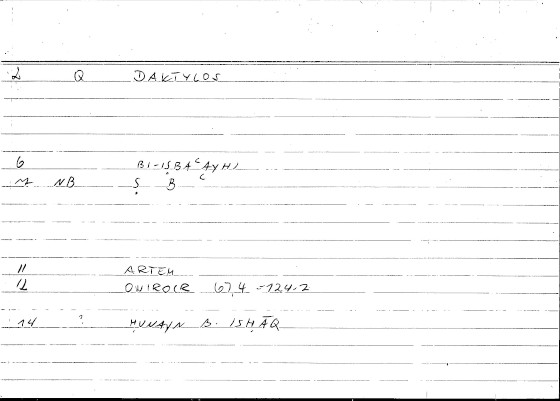 2 Q DAKTYLOS
6 BI-IṢBAʿAYHI
M NB Ṣ B ʿ
11 ARTEM
12 ONIROCR 67,4 -124.2
14 ? ḤUNAYN B. ISḤĀQ